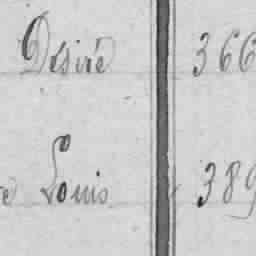 Désiré 366
e Louis 389